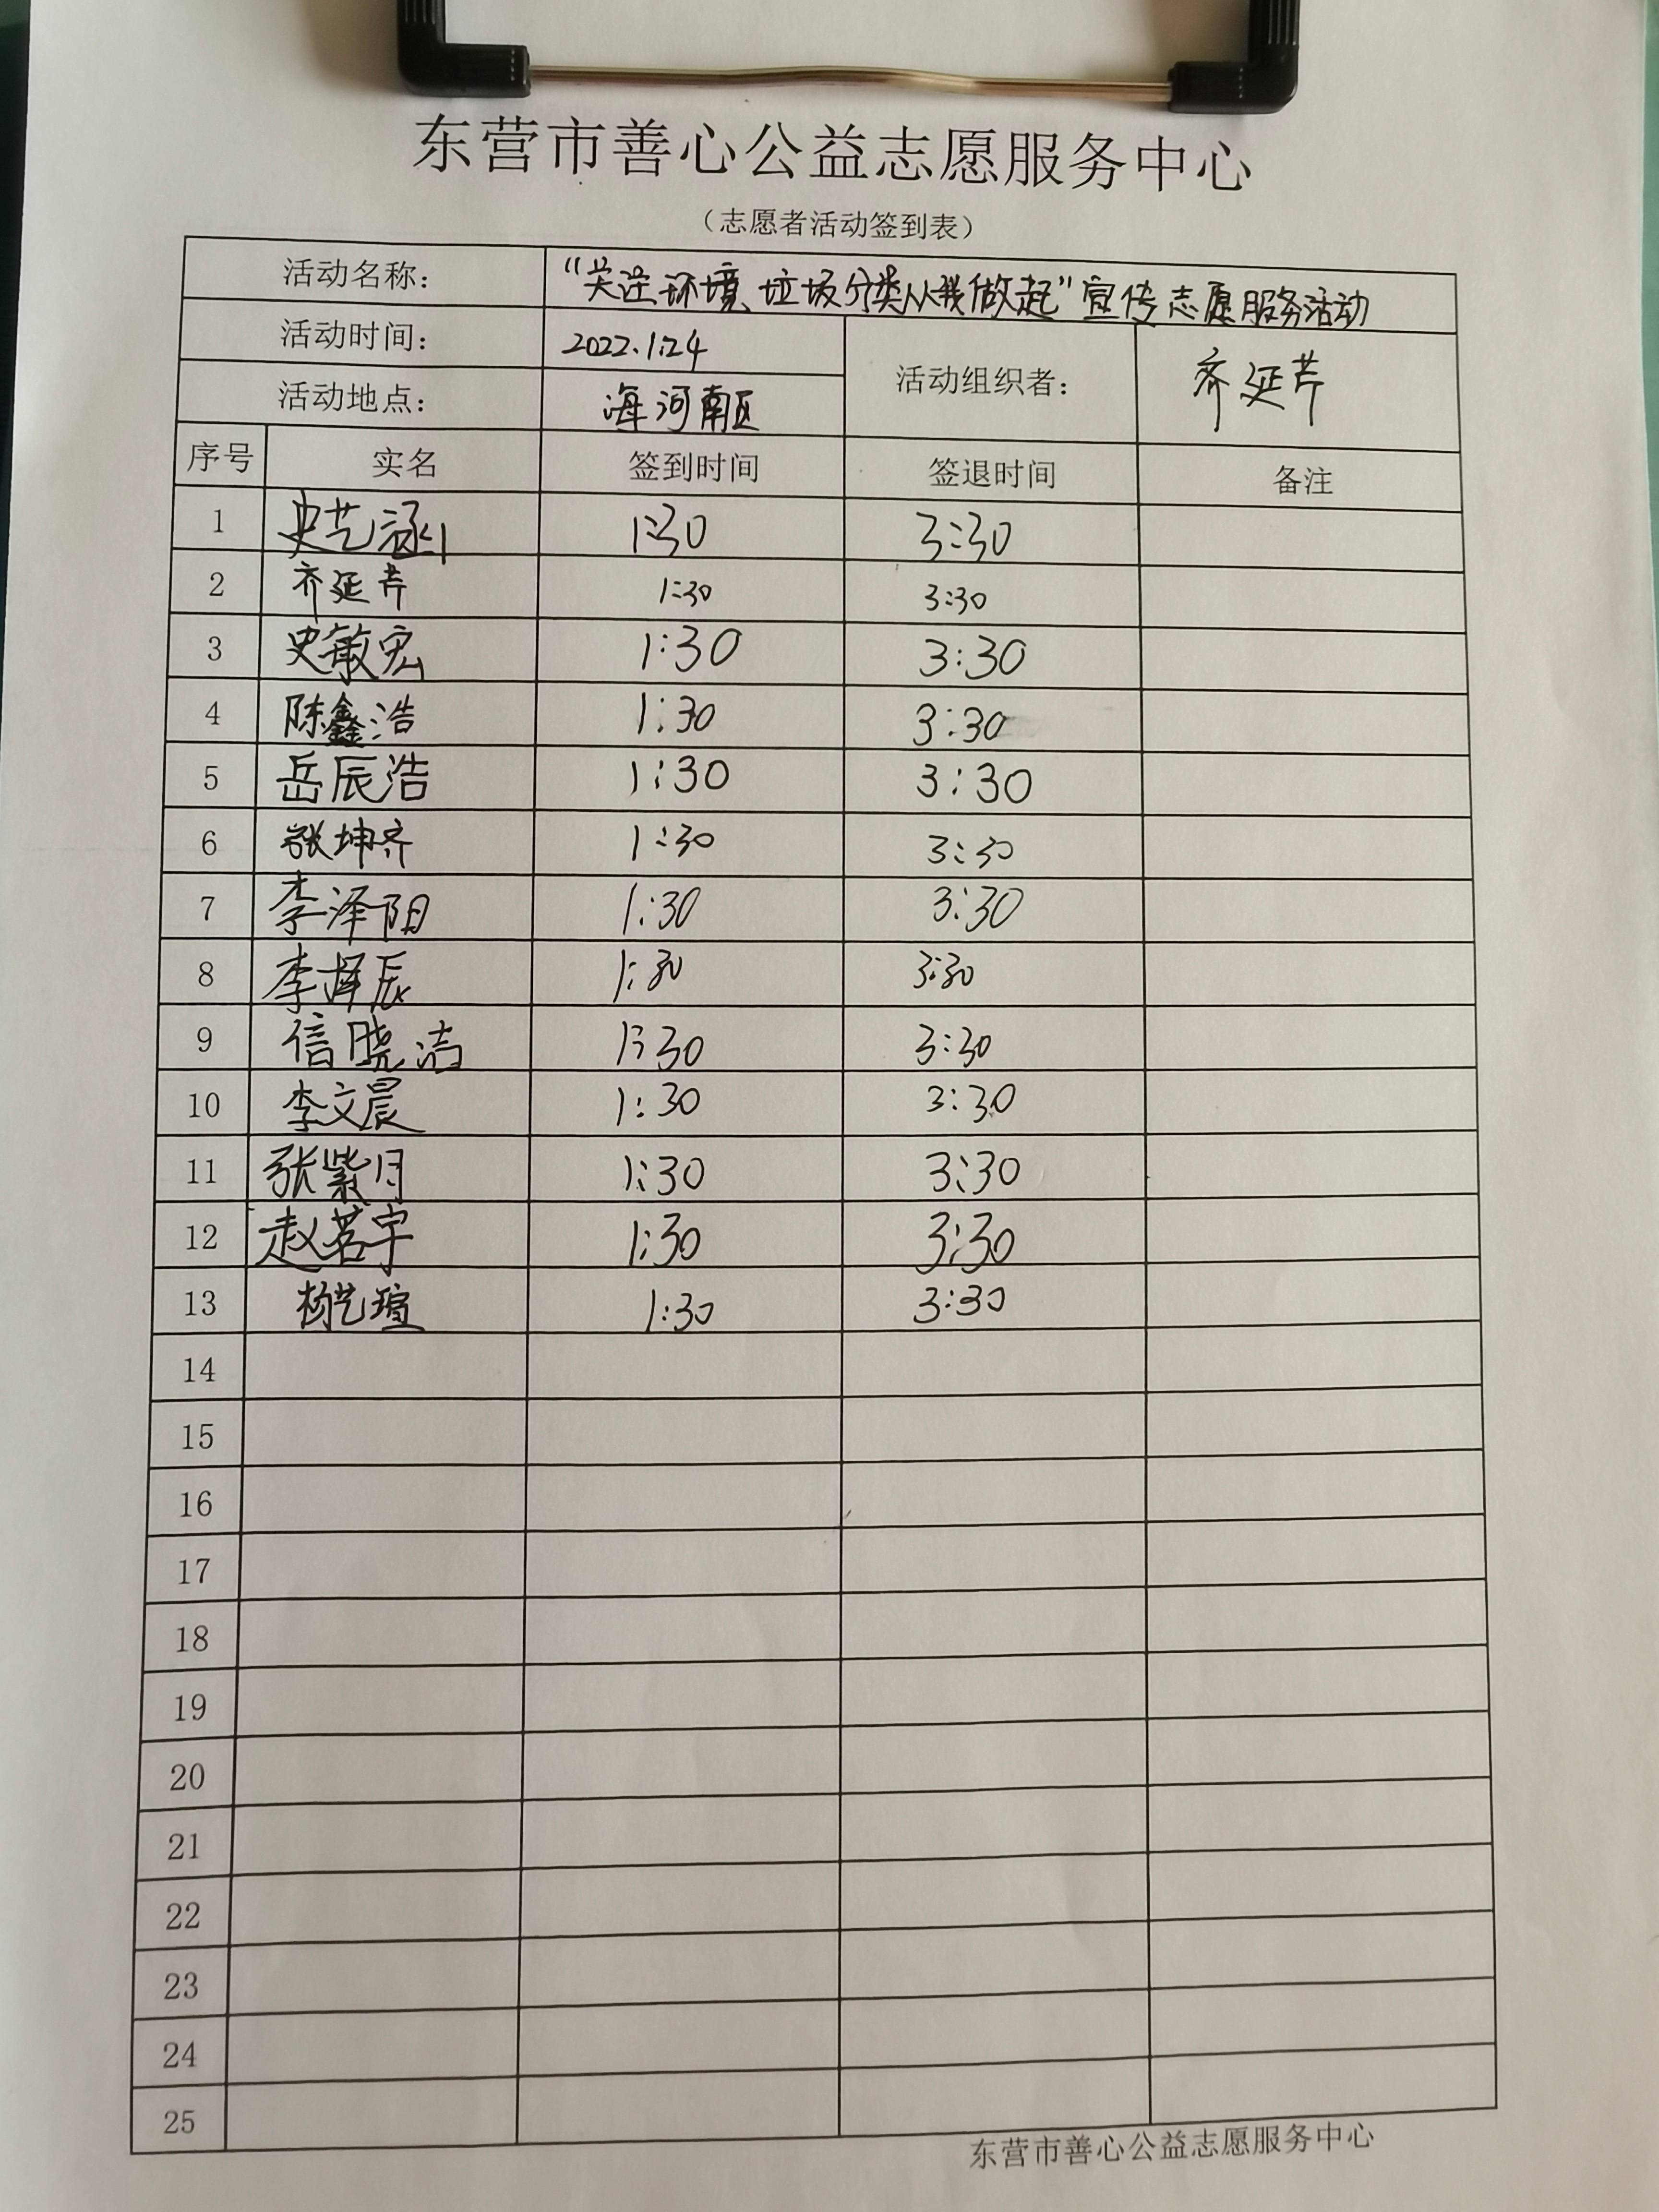 东营市善心公益志愿服务中心
（志愿者活动签到表）
活动名称： "关注环境、垃圾分类从我做起"宣传志愿服务活动
活动时间： 2022.1.24 活动组织者： 齐延芹
活动地点： 海河南区
序号 实名 签到时间 签退时间 备注
1 史艺涵 1:30 3:30
2 齐延芹 1:30 3:30
3 史敏宏 1:30 3:30
4 陈鑫浩 1:30 3:30
5 岳辰浩 1:30 3:30
6 张坤齐 1:30 3:30
7 李泽阳 1:30 3:30
8 李择辰 1:30 3:30
9 信晓洁 1:30 3:30
10 李文晨 1:30 3:30
11 张紫月 1:30 3:30
12 赵茗宇 1:30 3:30
13 杨艺瑄 1:30 3:30
14
15
16
17
18
19
20
21
22
23
24
25
东营市善心公益志愿服务中心